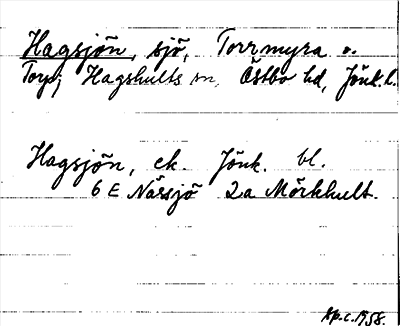 Hagsjön, sjö, Torrmyra o.
Torp, Hagshults sn, Östbo hd, Jönk. l.
Hagsjön, ek. Jönk. bl.
6 E Nässjö 2a Mörkhult.
Xp.c. 1958.